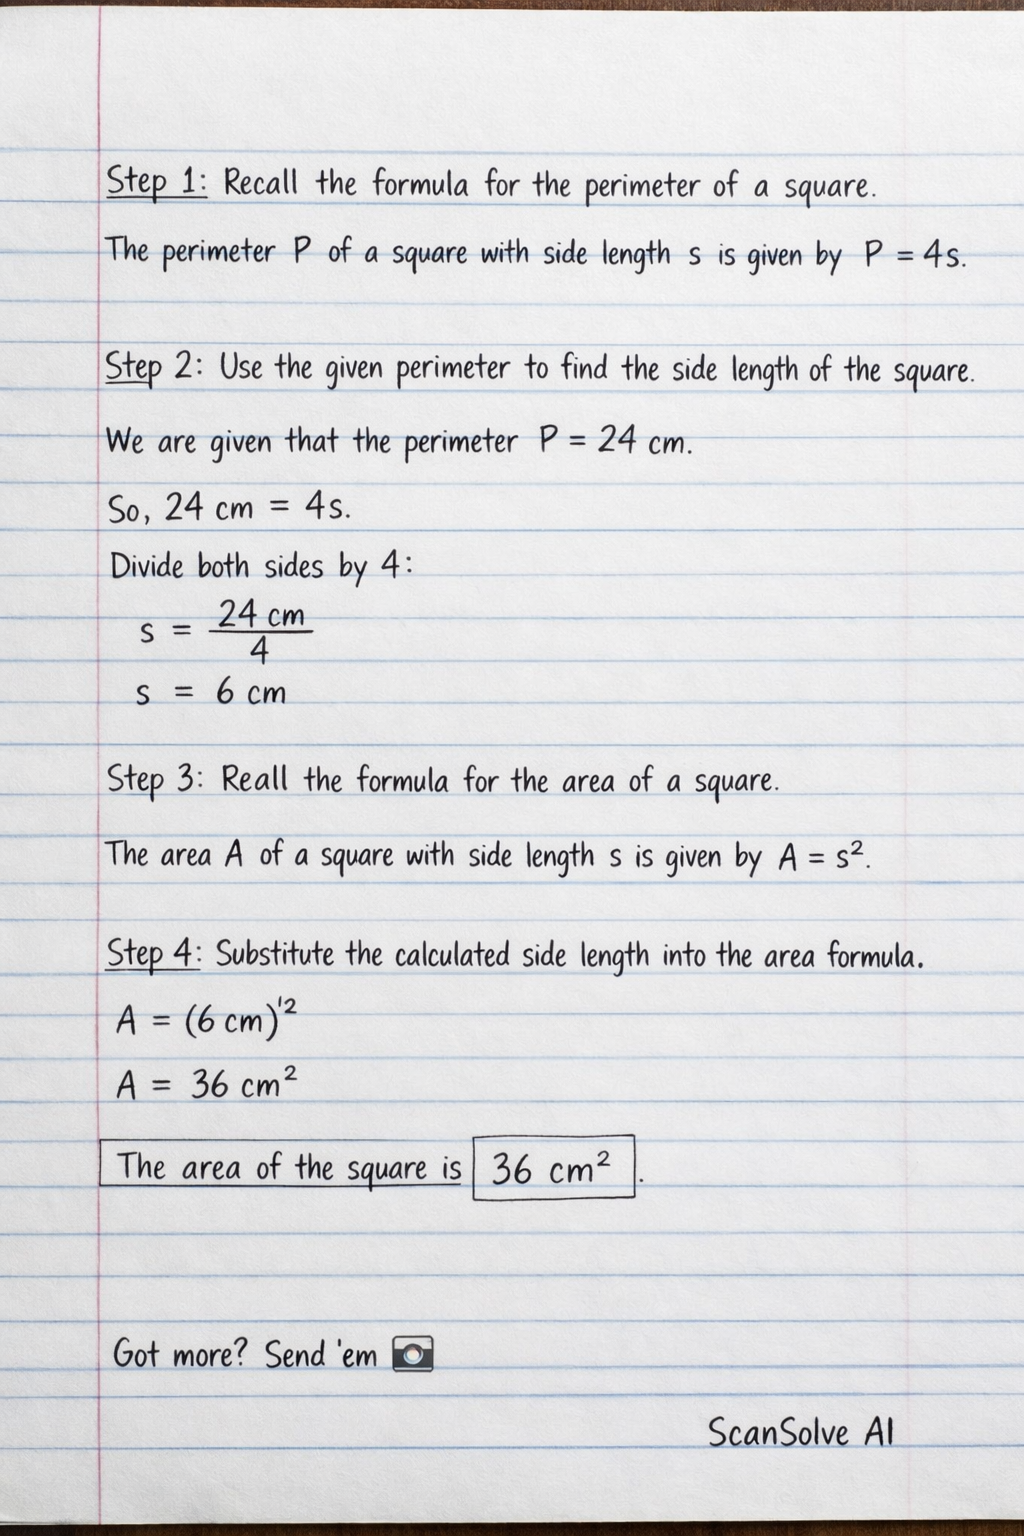 Step 1: Recall the formula for the perimeter of a square.
The perimeter P of a square with side length s is given by P = 4s.
Step 2: Use the given perimeter to find the side length of the square.
We are given that the perimeter P = 24 cm.
So, 24 cm = 4s.
Divide both sides by 4:
s = 24 cm / 4
s = 6 cm
Step 3: Reall the formula for the area of a square.
The area A of a square with side length s is given by A = s².
Step 4: Substitute the calculated side length into the area formula.
A = (6 cm)'²
A = 36 cm²
The area of the square is 36 cm².
Got more? Send 'em 📷
ScanSolve AI